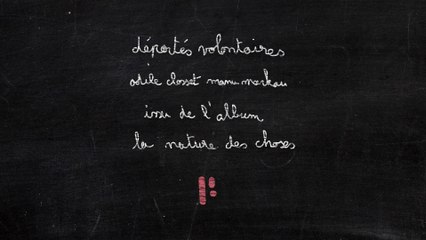 déportés volontaires
odile closset manu markou
issu de l'album
la nature des choses